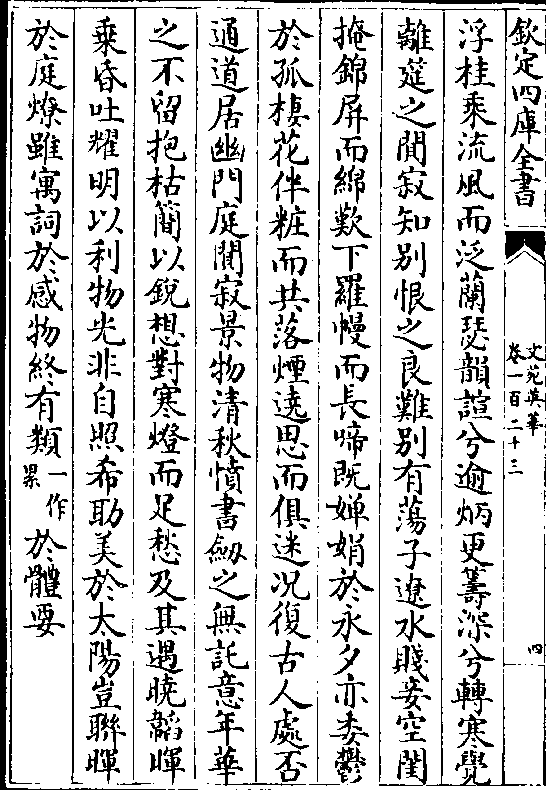 欽定四庫全書
文苑英華
卷一百二十三
四
浮桂乘流風而泛蘭瑟韻諠兮逾炳更籌深兮轉寒覺
離筵之閴寂知別恨之良難別有蕩子遼水賤妾空閨
掩錦屏而綿歎下羅幔而長啼既嬋娟於永夕亦委鬱
於孤棲花伴粧而共落煙遶思而俱迷况復古人處否
通道居幽門庭閴寂景物清秋憤書劒之無託意年華
之不留抱枯簡以銳想對寒燈而足愁及其遇曉韜暉
乘昏吐耀明以利物光非自照希助美於太陽豈聯暉
於庭燎雖寓詞於感物終有類一作累於體要